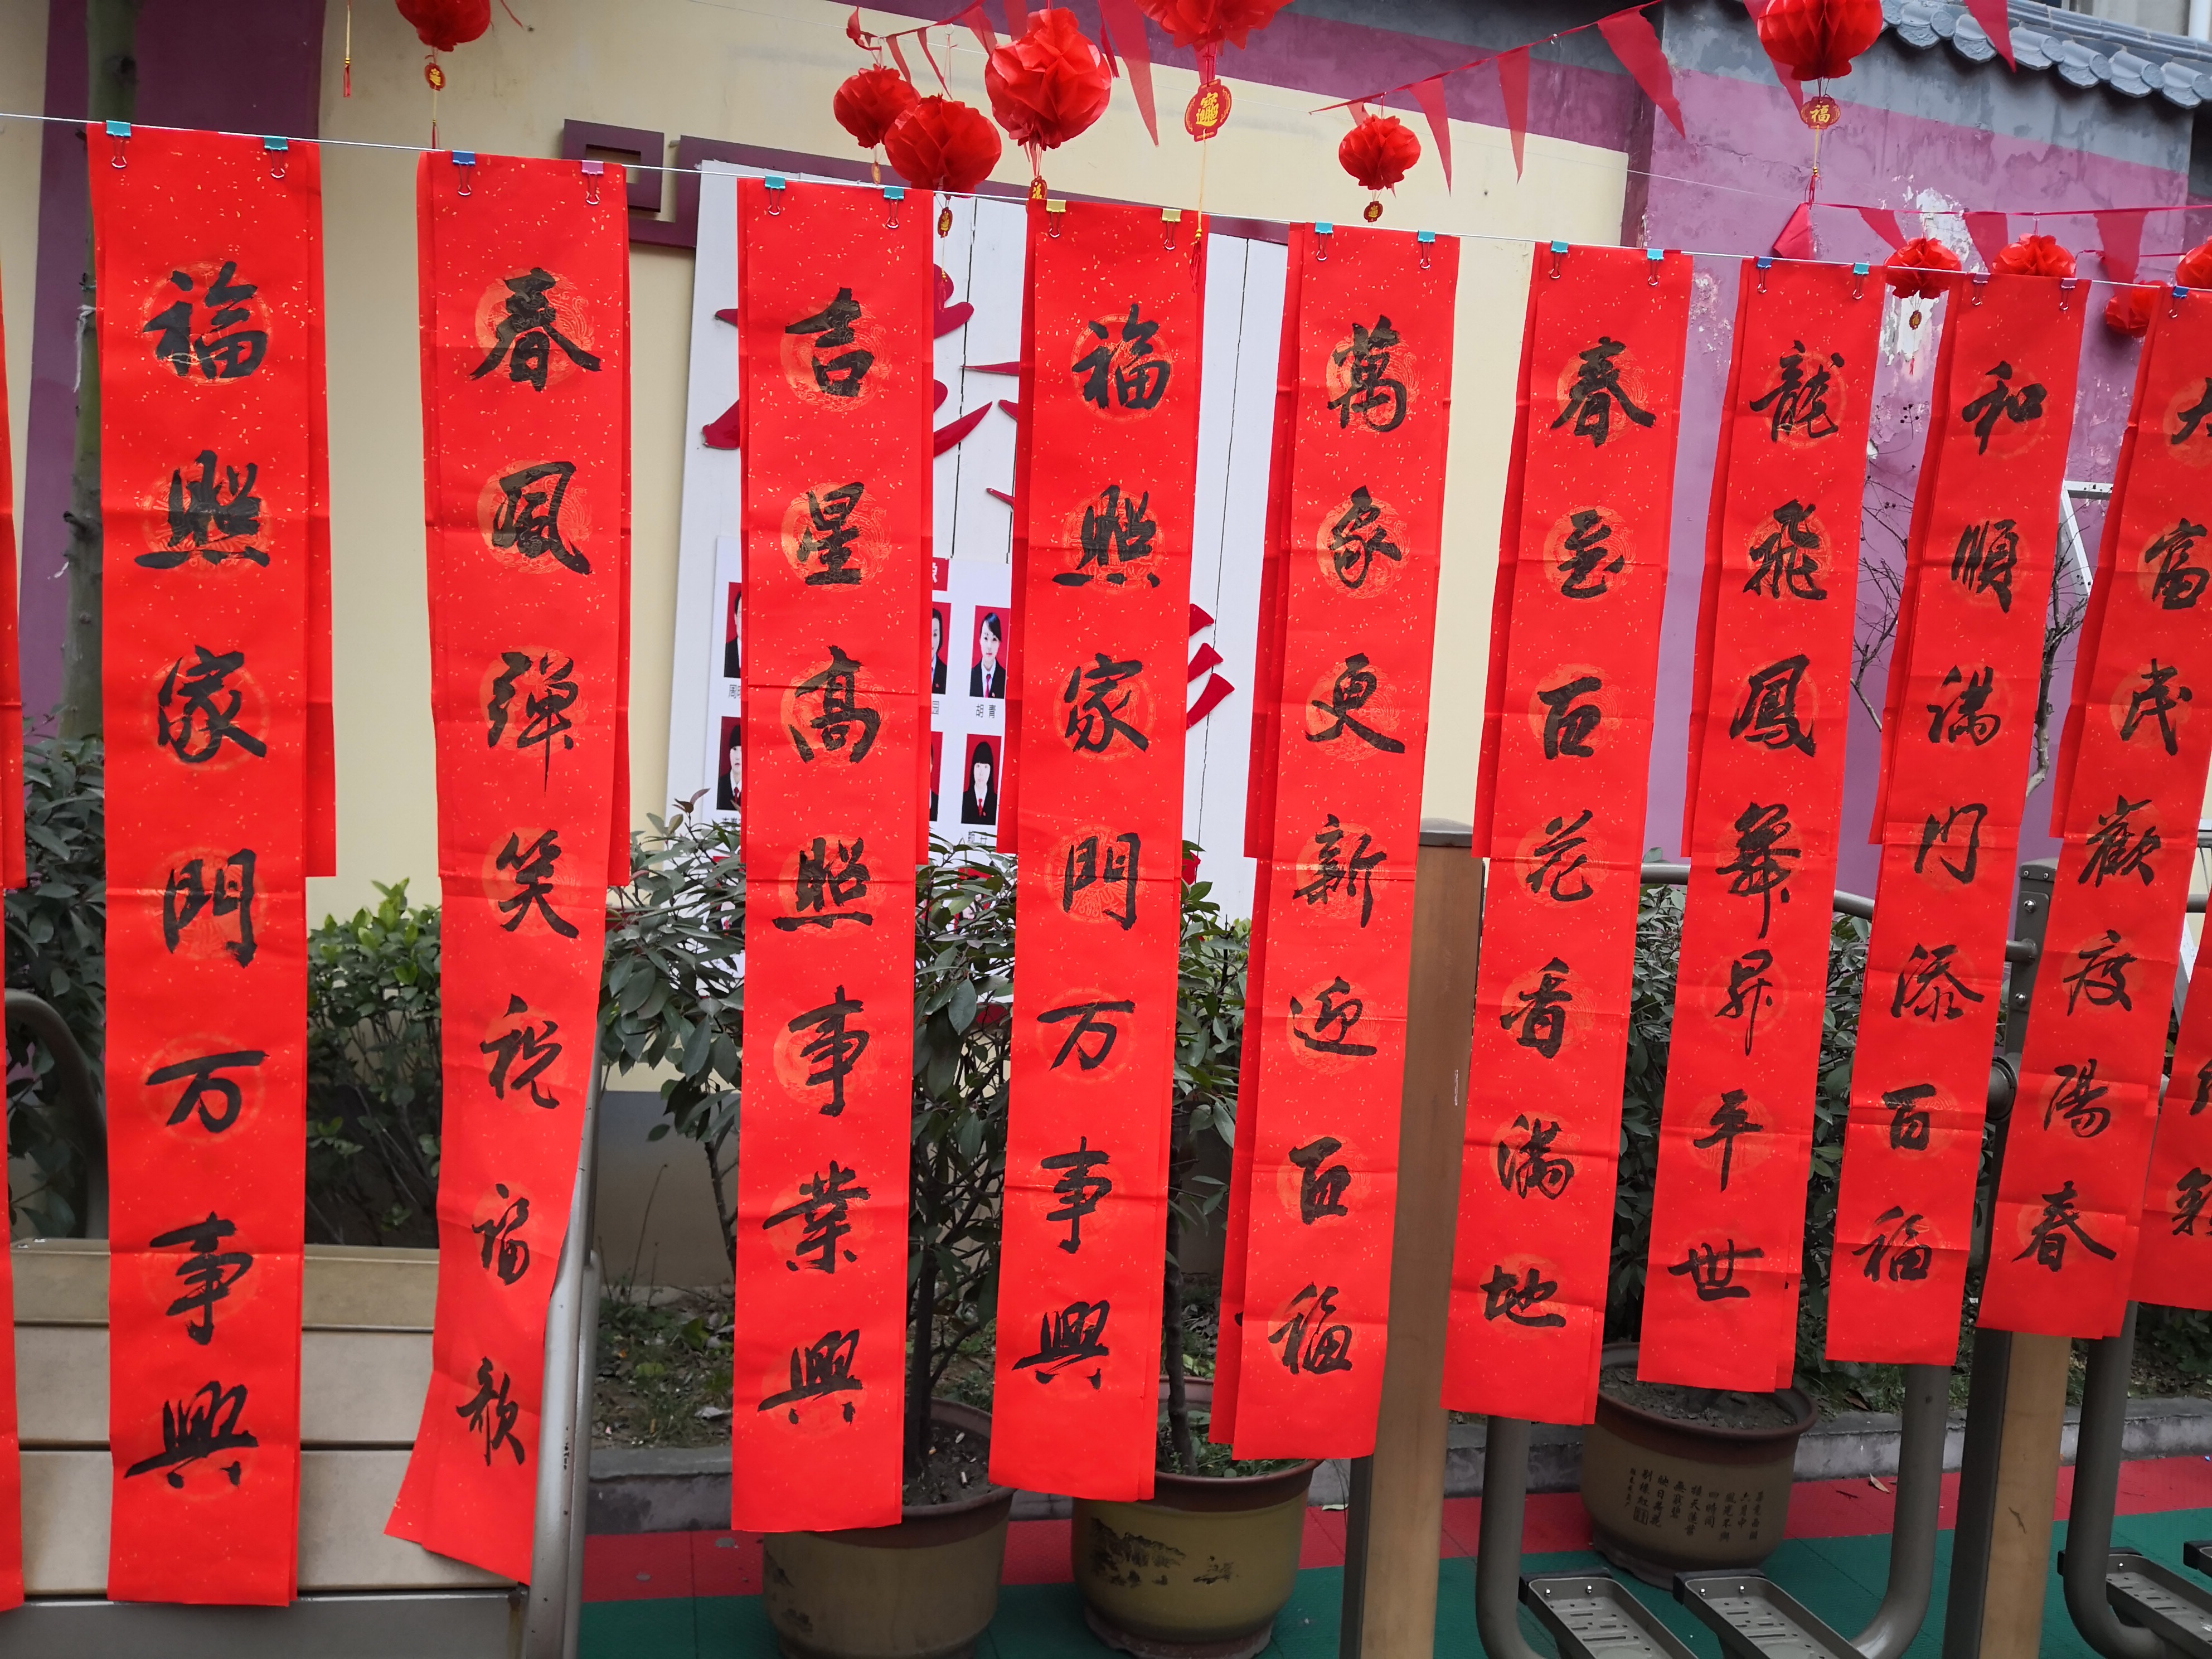 福照家門万事興
春風弹笑祝福歌
吉星高照事業興
福照家門万事興
萬家更新迎百福
春到百花香满地
龍飛鳳舞昇平世
和順满门添百福
富民歡度陽春
福